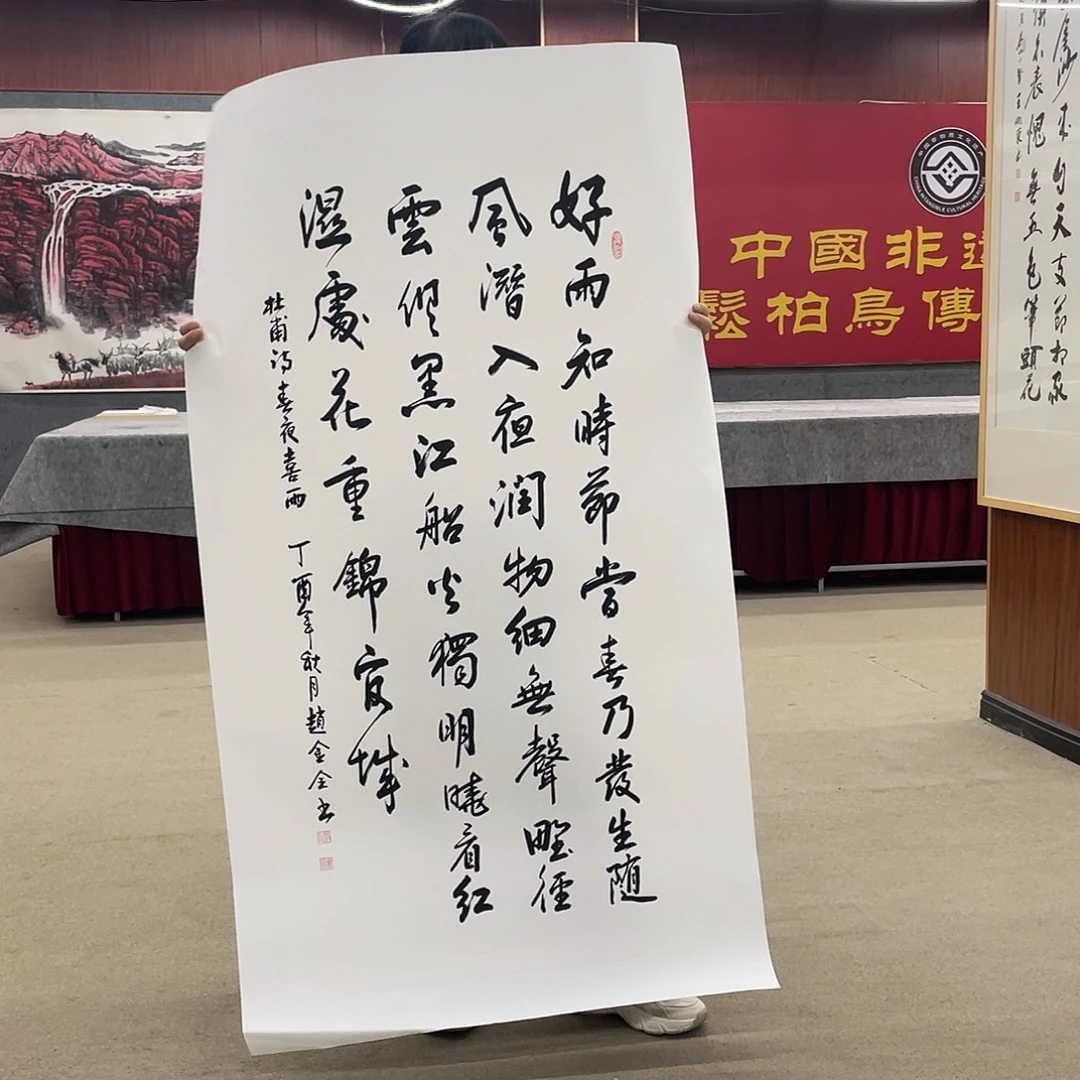 好雨知時節當春乃發生随
風潛入夜润物細無聲野徑
雲俱黑江船火獨明曉看红
湿處花重錦官城
杜甫诗春夜喜雨 丁酉年秋月趙金全书
中國非
鬆柏鳥傳
CHINA INTANGIBLE CULTURAL HERITAGE
愧無五色筆頭花